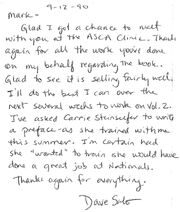 9-12-90
Mark -
Glad I got a chance to meet
with you at the ASCA Clinic. Thanks
again for all the work you've done
on my behalf regarding the book.
Glad to see it is selling fairly well.
I'll do the best I can over the
next several weeks to work on Vol. 2.
I've asked Carrie Steinseifer to write
a preface - as she trained with me
this summer. I'm certain had
she "wanted" to train she would have
done a great job at Nationals.
Thanks again for everything.
Dave Salo